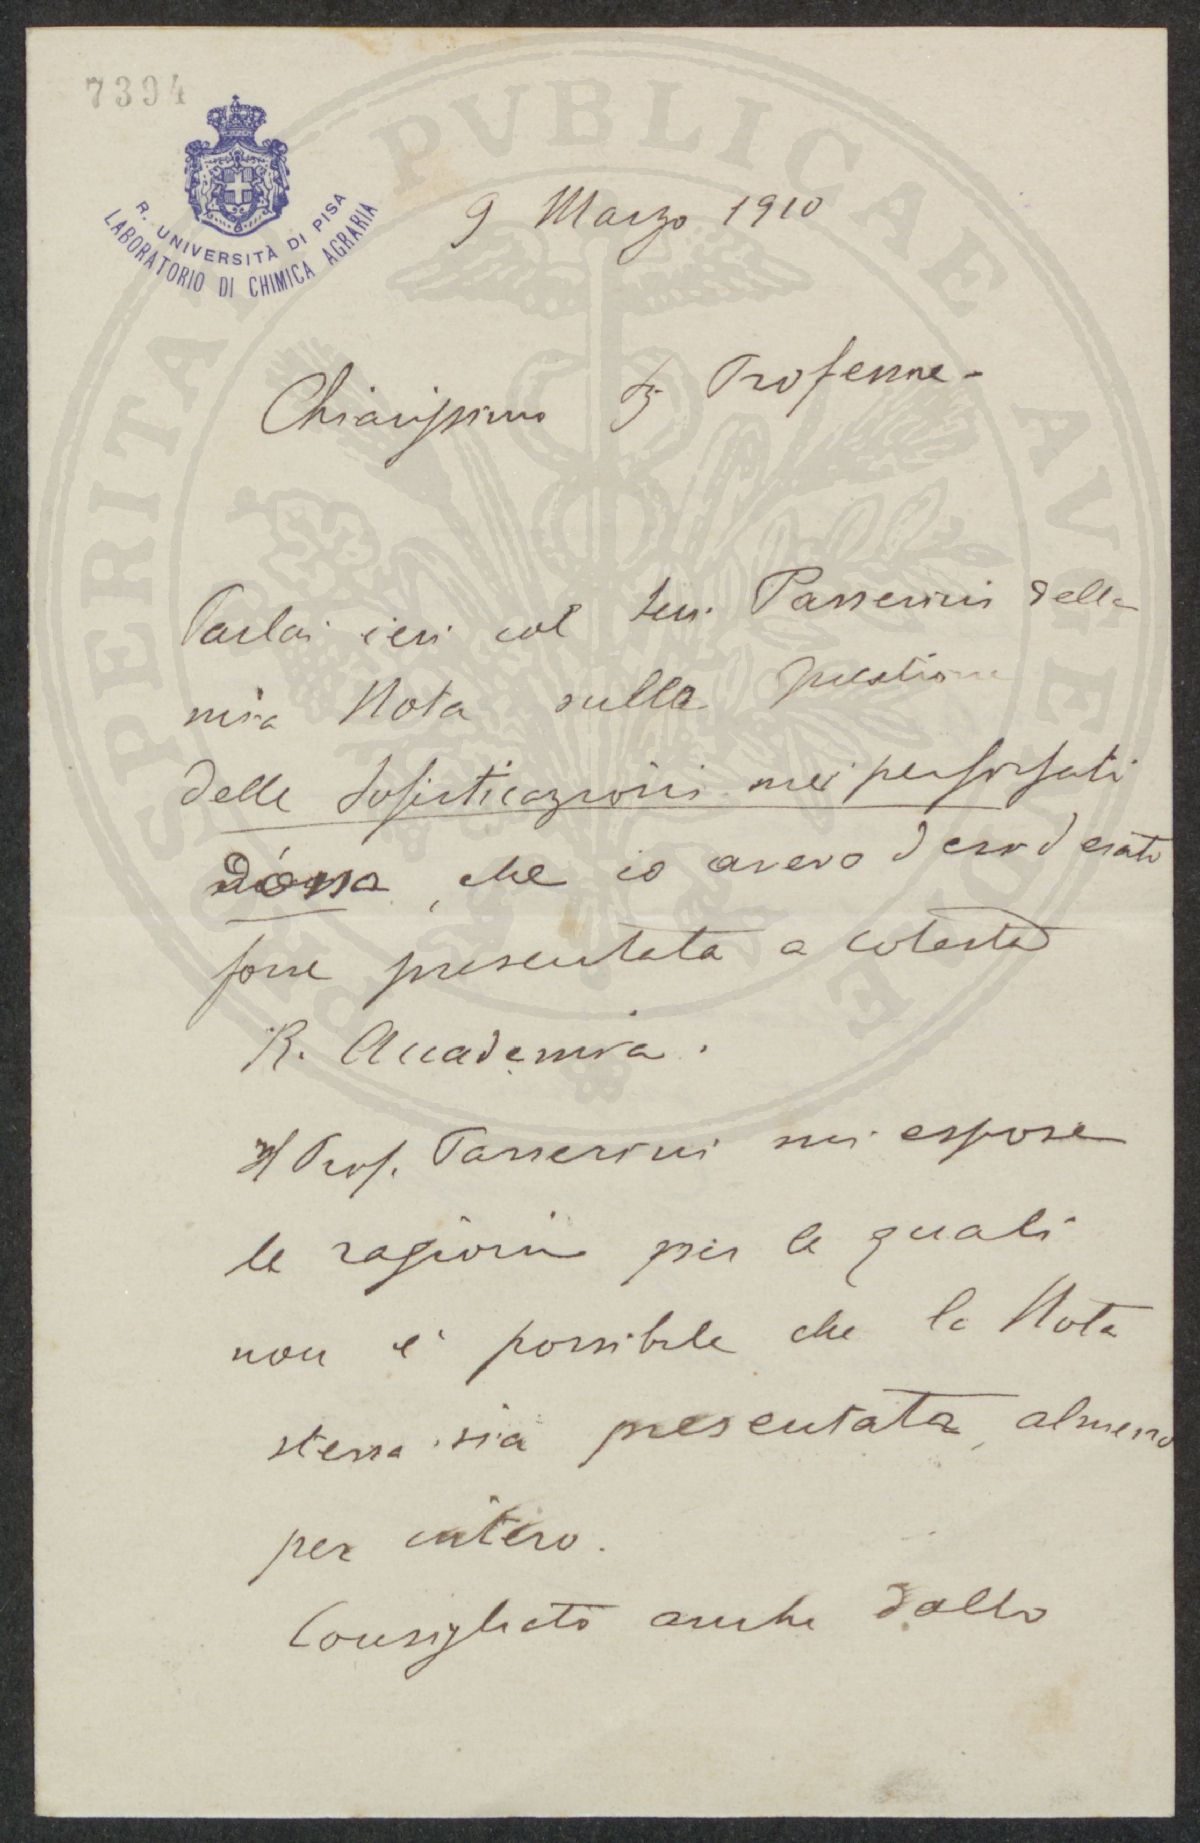 7394
R. UNIVERSITÀ DI PISA
LABORATORIO DI CHIMICA AGRARIA
PROSPERITATI PVBLICAE AVGENDAE
9 Marzo 1910
Chiarissimo Sig. Professore -
Parlai ieri col Passerini della
mia Nota sulla questione
delle sofisticazioni nei perfosfati
d'ossa, che io avevo desiderato
fosse presentata a cotesta
R. Accademia.
Il Prof. Passerini mi espose
le ragioni per le quali
non è possibile che la Nota
stessa sia presentata, almeno
per intero.
Consigliato anche dallo